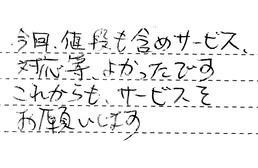 今回、値段も含めサービス、
対応等、よかったです
これからも、サービスを
お願いします